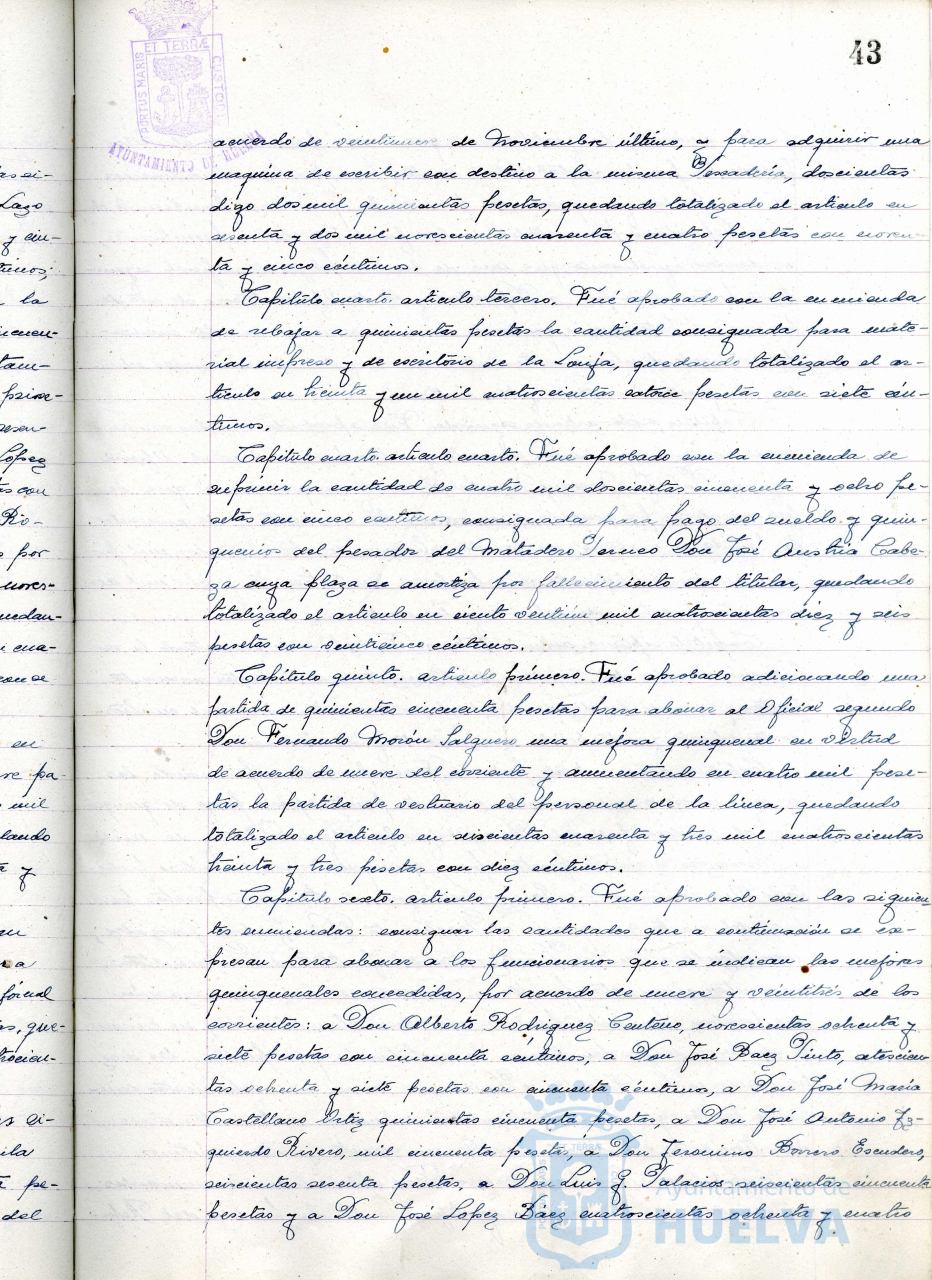 43
PORTUS MARIS ET TERRÆ CUSTODIA
AYUNTAMIENTO DE HUELVA
acuerdo de veintinueve de Noviembre último, y para adquirir una
maquina de escribir con destino a la misma Pescadería, doscientas
digo dos mil quinientas pesetas, quedando totalizado el articulo en
sesenta y dos mil novescientas cuarenta y cuatro pesetas con noven-
ta y cinco céntimos.
Capítulo cuarto. articulo tercero. Fué aprobado con la enmienda
de rebajar a quinientas pesetas la cantidad consignada para mate-
rial impreso y de escritorio de la Lonja, quedando totalizado el ar-
ticulo en treinta y un mil cuatroscientas catorce pesetas con siete cén-
timos.
Capítulo cuarto. artículo cuarto. Fué aprobado con la enmienda de
suprimir la cantidad de cuatro mil doscientas cincuenta y ocho pe-
setas con cinco centimos, consignada para pago del sueldo y quin-
quenios del pesador del Matadero Don José Austria Cabe-
za cuya plaza se amortiza por fallecimiento del titular, quedando
totalizado el articulo en ciento mil cuatroscientas diez y seis
pesetas con veinticinco céntimos.
Capítulo quinto. articulo primero. Fué aprobado adicionando una
partida de quinientas cincuenta pesetas para abonar al Oficial segundo
Don Fernando Morón Salguero una mejora quinquenal en virtud
de acuerdo de nueve del corriente y aumentando en cuatro mil pese-
tas la partida de vestuario del personal de la línea, quedando
totalizado el articulo en seiscientas cuarenta y tres mil cuatroscientas
treinta y tres pesetas con diez céntimos.
Capítulo sexto. articulo primero. Fué aprobado con las siguien-
tes enmiendas: consignar las cantidades que a continuación se ex-
presan para abonar a los funcionarios que se indican las mejoras
quinquenales concedidas, por acuerdo de nueve y veintitrés de los
corrientes: a Don Alberto Rodríguez Centeno, novescientas ochenta y
siete pesetas con cincuenta céntimos, a Don José Baez Pinto,
tas ochenta y siete pesetas con cincuenta céntimos, a Don José María
Castellano Ortiz quinientas cincuenta pesetas, a Don José Antonio Iz-
quierdo Rivero, mil cincuenta pesetas, a Don Jeronimo Borrero Escudero,
seiscientas sesenta pesetas, a Don Luis G. Palacios seiscientas cincuenta
pesetas y a Don José Lopez Báez cuatroscientas ochenta y cuatro
Ayuntamiento de
HUELVA